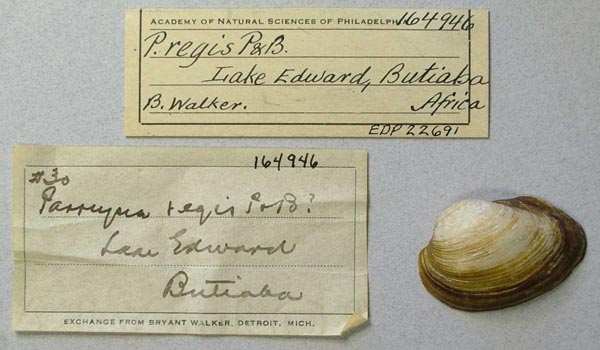 ACADEMY OF NATURAL SCIENCES OF PHILADELPH 164946
P. regis P&B.
Lake Edward, Butiaba
B. Walker. Africa
EDP 22691
164946
#30
Parreysa regis P&B?
Lake Edward
Butiaba
EXCHANGE FROM BRYANT WALKER, DETROIT, MICH.